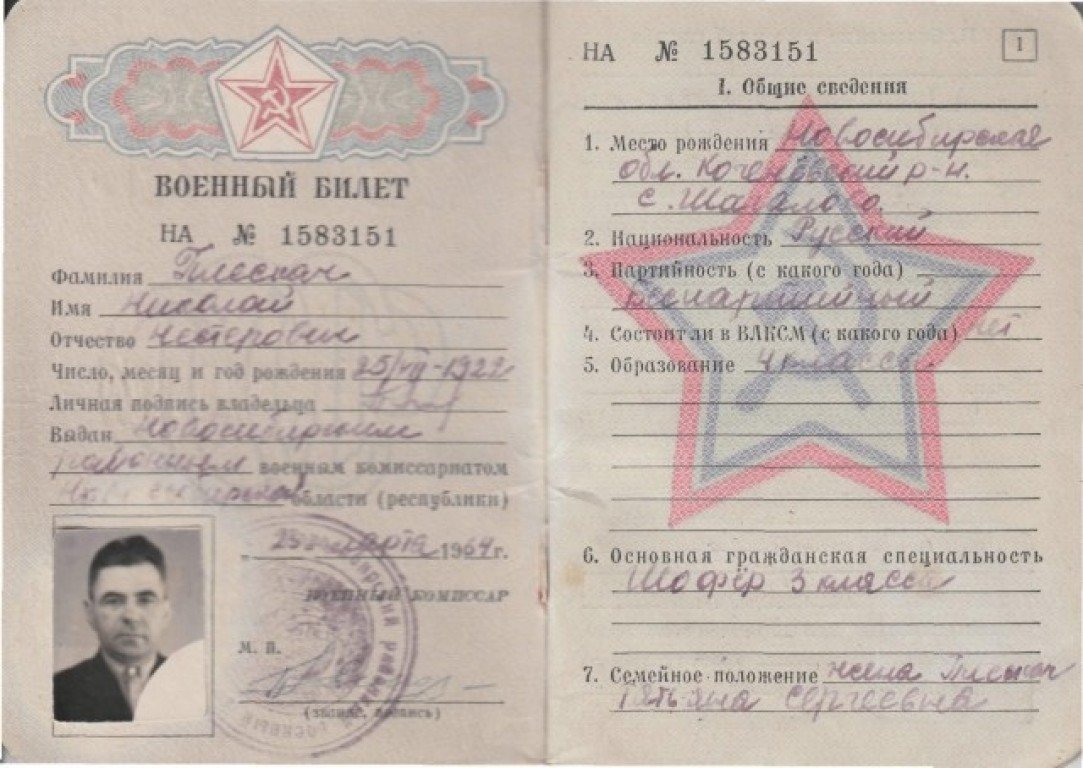 ВОЕННЫЙ БИЛЕТ
НА № 1583151
Фамилия Плескач
Имя Николай
Отчество Нестерович
Число, месяц и год рождения 25/VII-1922г
Личная подпись владельца
Выдан Новосибирским
районным военным комиссариатом
Новосибирской области (республики)
"25" марта 1964 г.
ВОЕННЫЙ КОМИССАР
М. П.
(звание, подпись)
НА № 1583151
1
I. Общие сведения
1. Место рождения Новосибирская
обл. Коченёвский р-н.
с. Шагалово
2. Национальность Русский
3. Партийность (с какого года)
Беспартийный
4. Состоит ли в ВЛКСМ (с какого года) нет
5. Образование 4 класса
6. Основная гражданская специальность
Шофёр 3 класса
7. Семейное положение жена Плескач
Татьяна Сергеевна